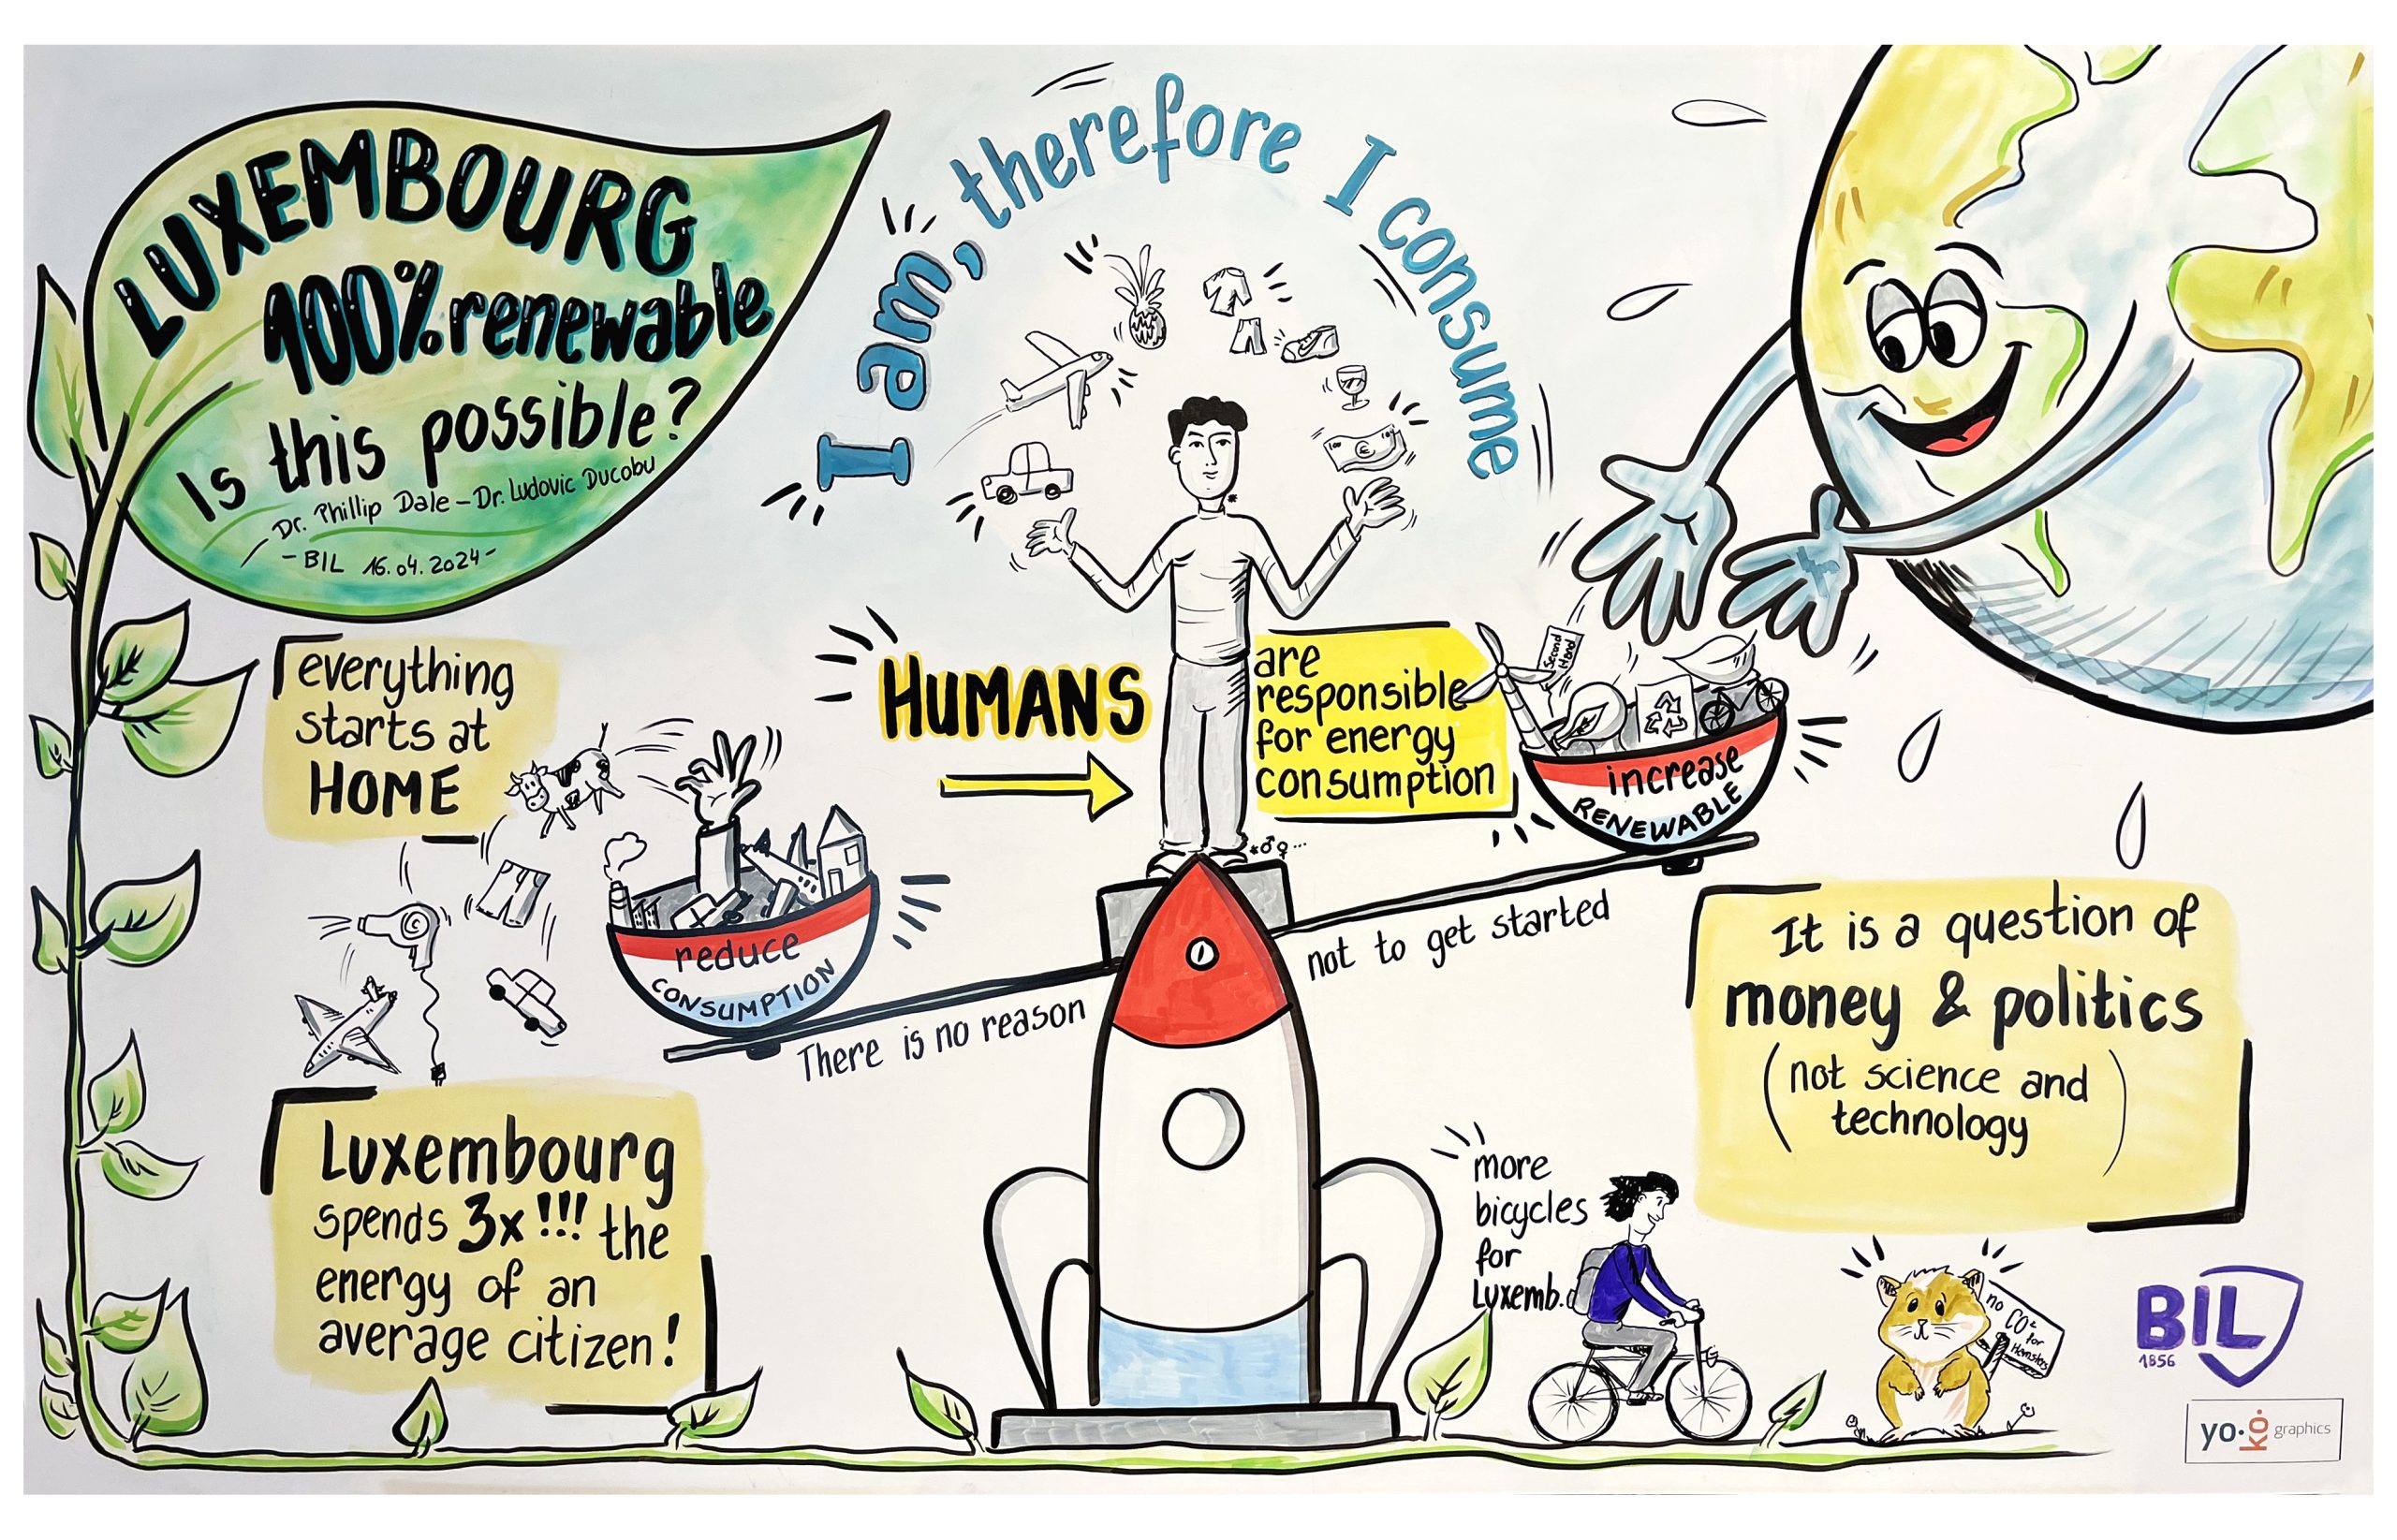 LUXEMBOURG
100% renewable
Is this possible?
Dr. Phillip Dale - Dr. Ludovic Ducobu
- BIL 16.04.2024 -
I am, therefore I consume
everything
starts at
HOME
HUMANS
are
responsible
for energy
consumption
*♂♀...
Second
Hand
increase
RENEWABLE
reduce
CONSUMPTION
There is no reason
not to get started
It is a question of
money & politics
(not science and
technology)
Luxembourg
spends 3x!!! the
energy of an
average citizen!
more
bicycles
for
Luxemb.
no
CO²
for
Hamsters
BIL
1856
yo.
ko.
graphics